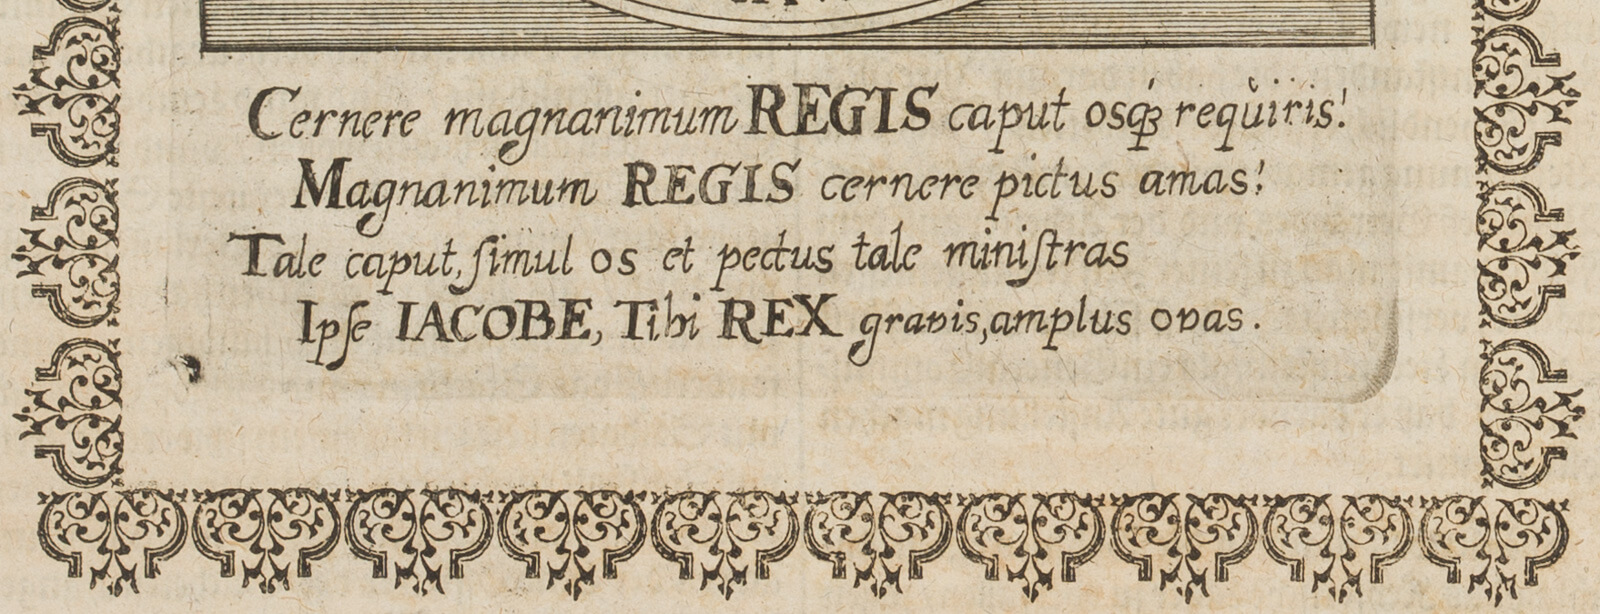 Cernere magnanimum REGIS caput osqꝫ requiris!
Magnanimum REGIS cernere pictus amas!
Tale caput, ſimul os et pectus tale miniſtras
Ipſe IACOBE, Tibi REX gravis, amplus ovas.